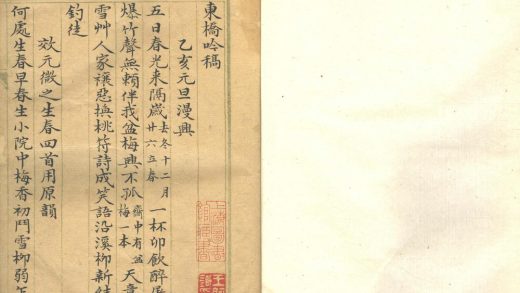 東橋吟稿
乙亥元旦漫興
五日春光來隔歲去冬十二月廿六立春一杯卯飲醉屠
爆竹聲無賴伴我盆梅興不孤齋中有盆梅一本天意
雪艸人家禳惡換桃符詩成笑語沿溪柳新结
釣徒
效元微之生春四首用原韻
何處生春早春生小院中梅香初鬥雪柳弱